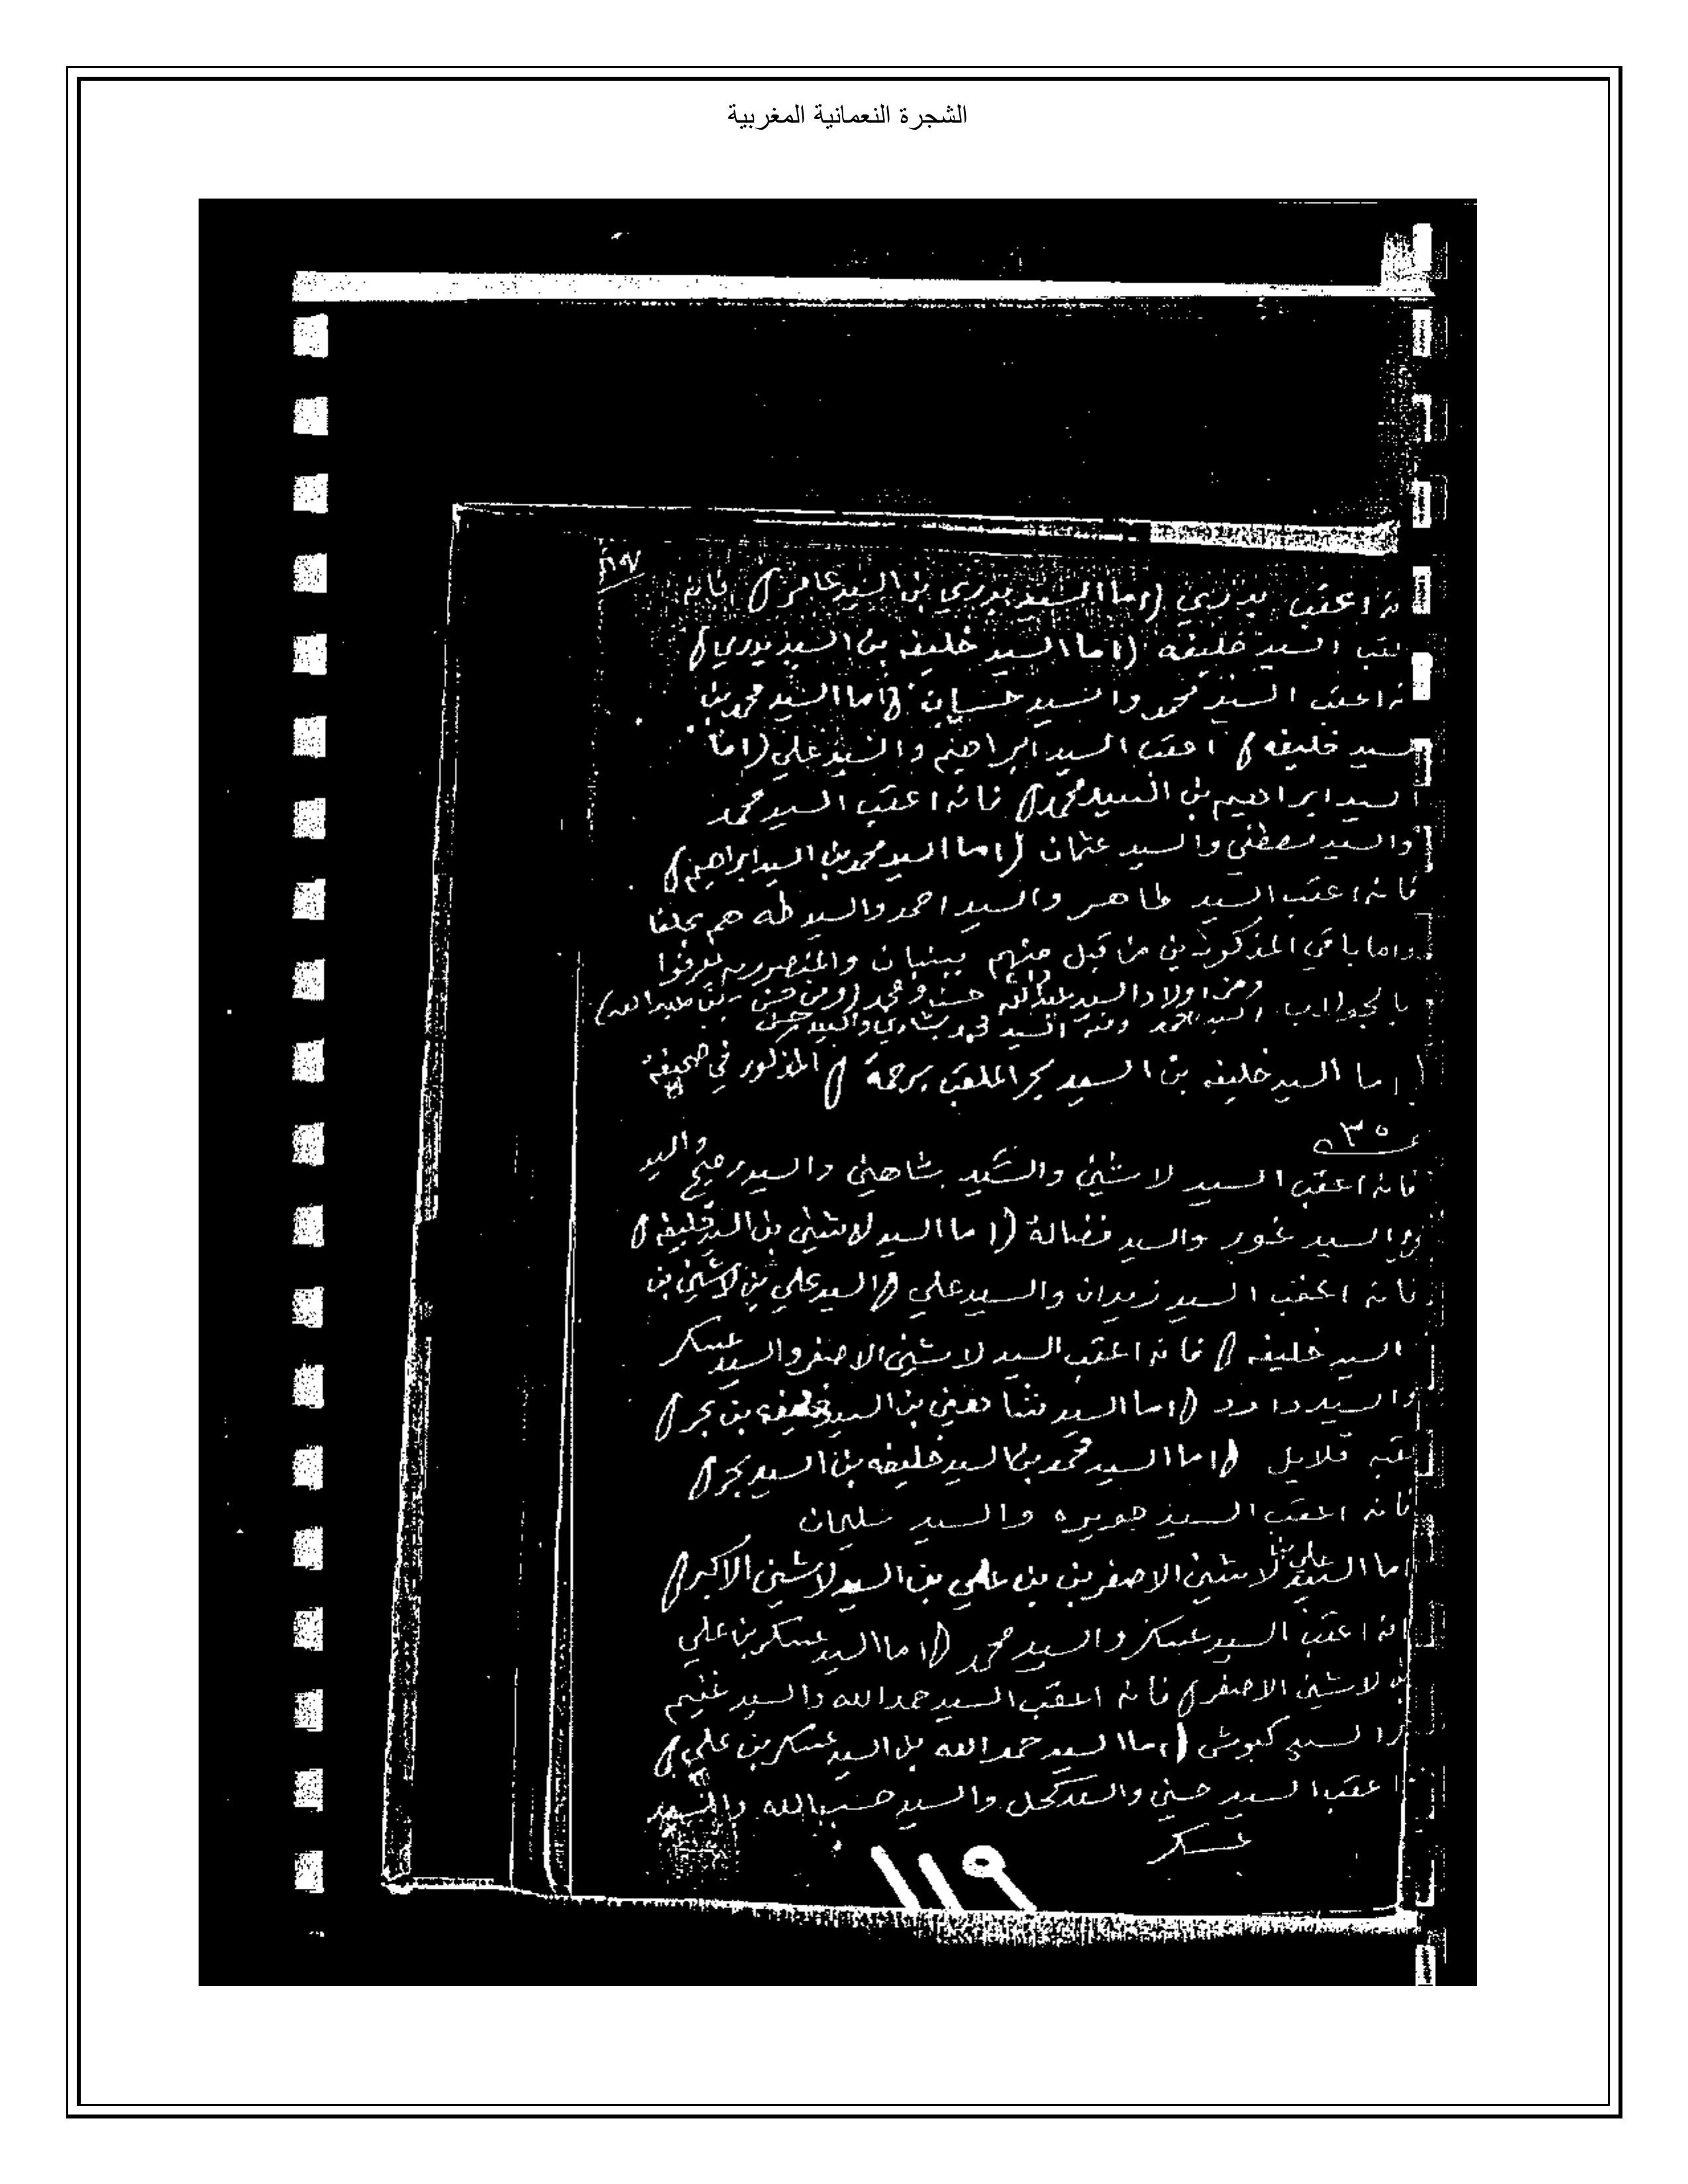 الشجرة النعمانية المغربية
اعقب بدري (اما السيد بدري بن السيد عامر) فانه
السيد خليفه (اما السيد خليفه بن السيد بدري)
اعقب السيد محمد والسيد حسان (اما السيد محمد بن
خليفه) اعقب السيد ابراهيم والسيد علي (اما
السيد ابراهيم بن السيد محمد) فانه اعقب السيد محمد
والسيد مصطفى والسيد عثمان (اما السيد محمد بن السيد ابراهيم)
فانه اعقب السيد طاهر والسيد احمد والسيد طه هم
واما باقي المذكورين من قبل منهم ببنبان
ومن اولاد السيد عبدالله حسن ومحمد (ومن حسن بن عبدالله)
السيد احمد ومنه السيد محمد
اما السيد خليفه بن السيد بحر الملقب برحمة) المذكور في صحيفة
٣٥
فانه اعقب السيد لاشين والسيد شاهين والسيد
السيد غور والسيد فضالة (اما السيد لاشين بن السيد خليفه)
فانه اعقب السيد زيدان والسيد علي (السيد علي بن لاشين بن
السيد خليفه) فانه اعقب السيد لاشين الاصغر والسيد عسكر
والسيد داود (اما السيد شاهين بن السيد خليفه بن بحر)
قلايل (اما السيد محمد بن السيد خليفه بن السيد بحر)
فانه اعقب السيد جويره والسيد سليمان
اما السيد علي بن لاشين الاصغر بن بن علي بن السيد لاشين الاكبر)
انه اعقب السيد عسكر والسيد محمد (اما السيد عسكر بن علي
بن لاشين الاصغر) فانه اعقب السيد حمدالله والسيد غنيم
السيد كبوش (اما السيد حمدالله بن السيد عسكر بن علي)
عقب السيد حسن والسيد كحل والسيد حسب الله والسيد
عسكر
١١٩